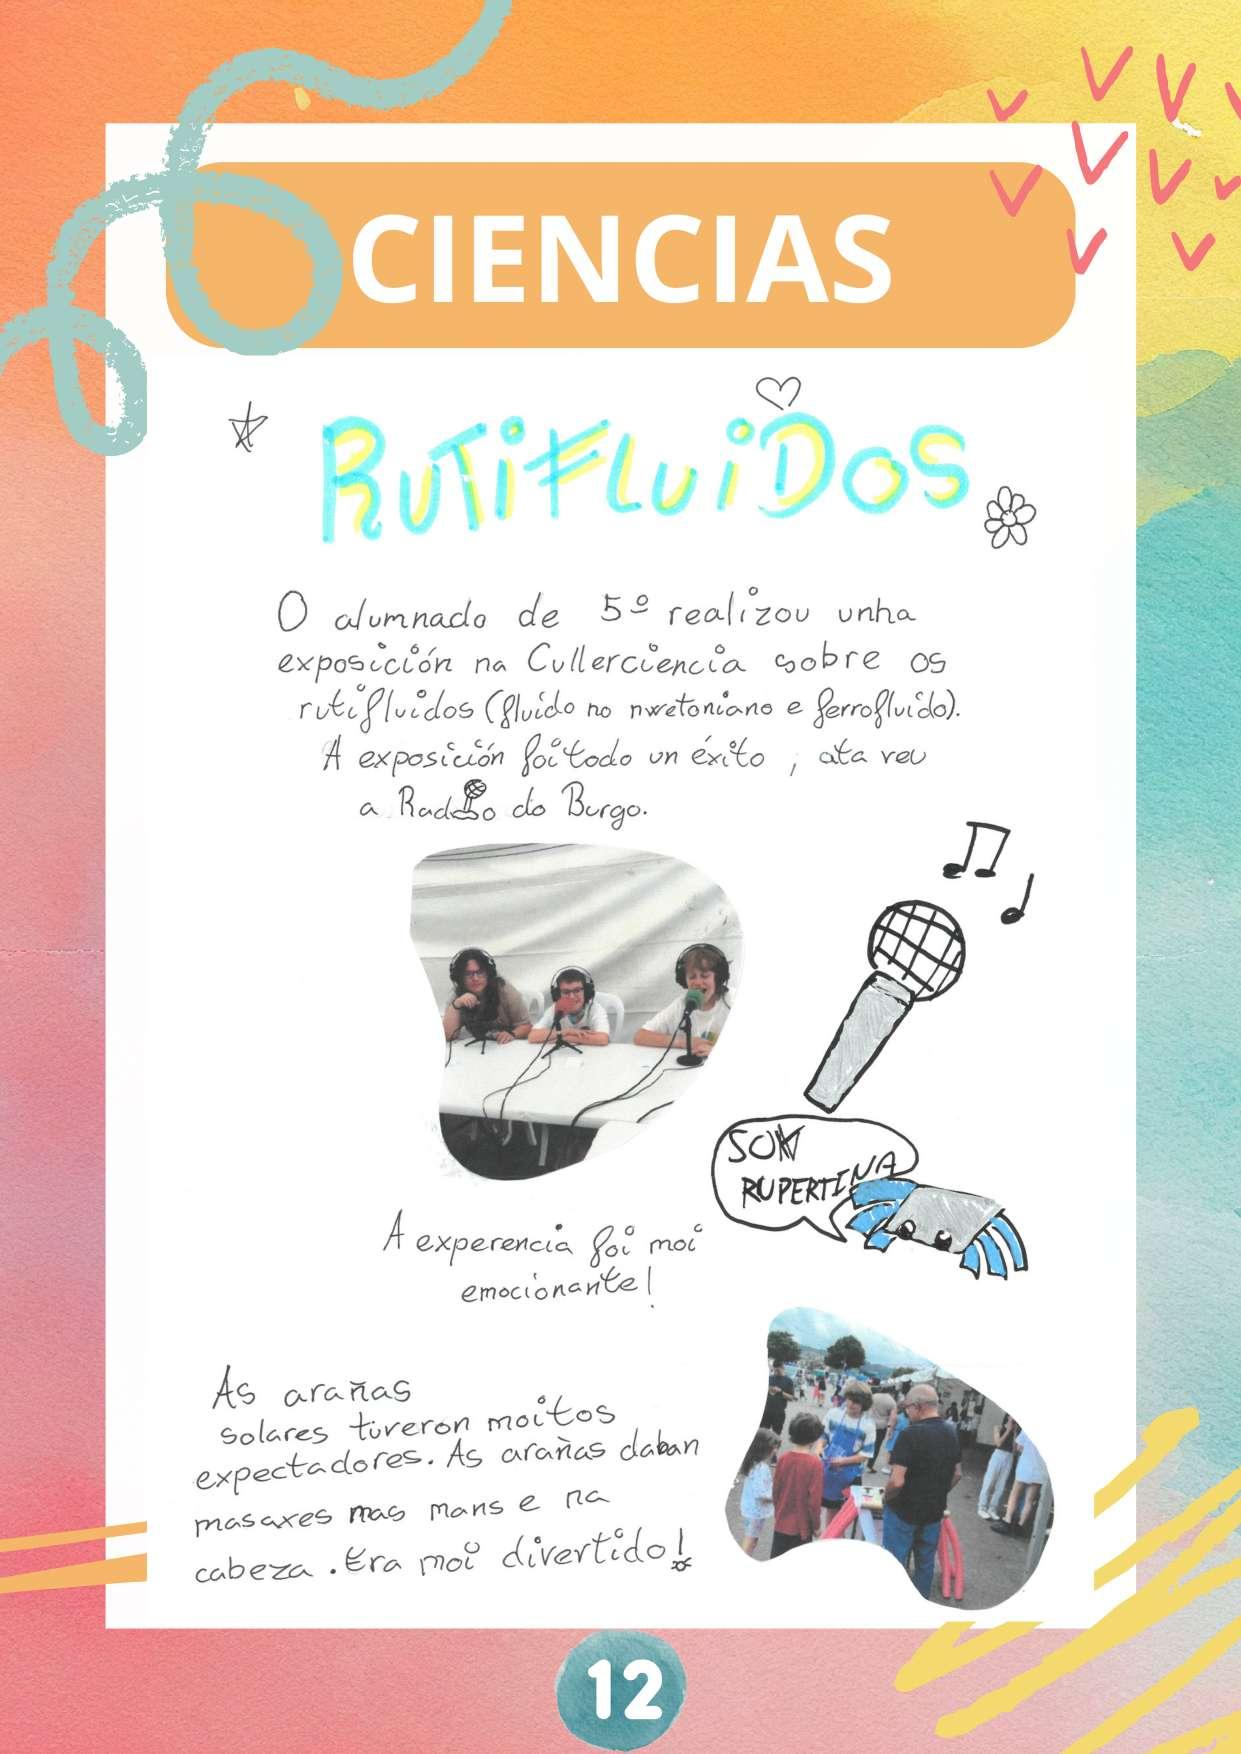 CIENCIAS
RUTIFLUIDOS
O alumnado de 5º realizou unha
exposición na Cullerciencia sobre os
rutifluidos (fluido no nwetoniano e ferrofluido).
A exposición foi todo un éxito, ata veu
a Radio do Burgo.
SON
RUPERTINA
A experencia foi moi
emocionante!
As arañas
solares tiveron moitos
expectadores. As arañas daban
masaxes nas mans e na
cabeza. Era moi divertido!
12